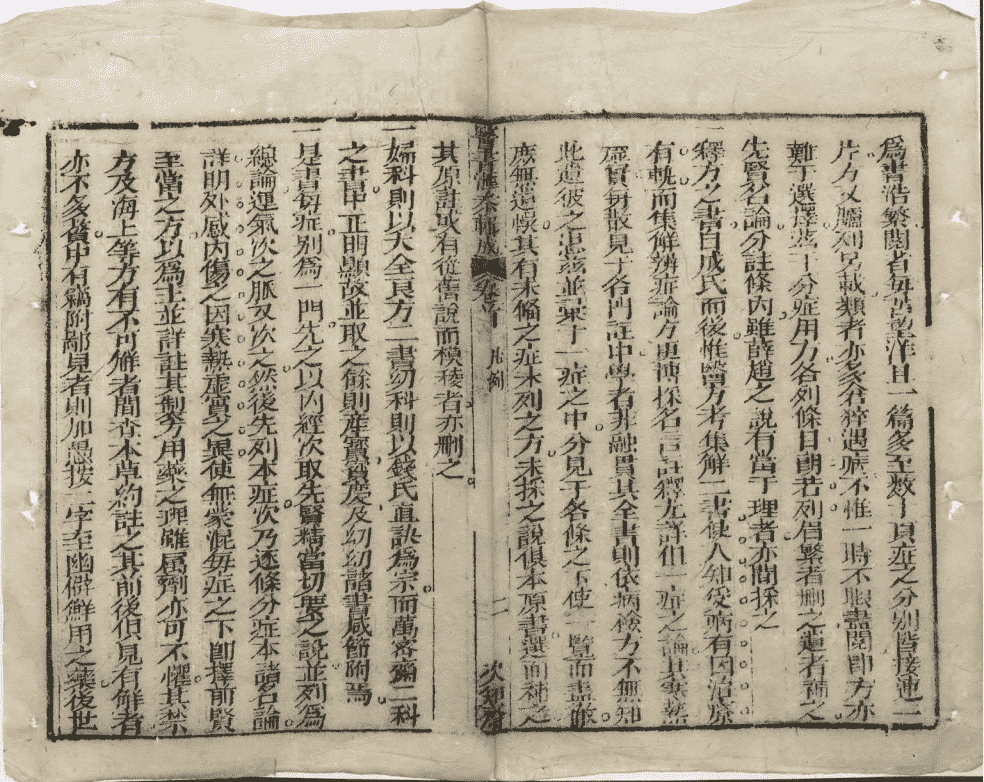 為書浩繁閱者每苦望洋且一篇多至數十頁症之分別皆接連二
片方又臚列另載類者亦多君猝遇病不惟一時不暇盡閱即方亦
難于選擇茲于分症用方各列條目朗若列眉繁者刪之遺者補之
先賢名論分註條內雖薛趙之說有當于理者亦間採之
一釋方之書自成氏而後惟醫方考集解二書使人知受病有因治療
有軌而集解辨症論方更博採名言註釋尤詳但一症之論其寒熱
虛實每散見于各門註中學者非融貫其全書則依病檢方不無知
此遺彼之患茲並彙于一症之中分見于各條之下使一覽而盡徹
庶無遺悞其有未備之症未列之方未採之說俱本原書選而補之
凡例
二
其原註或有從舊說而模稜者亦刪之
一婦科則以大全良方二書幼科則以錢氏直訣為宗而萬密齋二科
之書中正明顯故並取之餘則產寶及幼幼諸書咸節附焉
一是書每症別為一門先之以內經次取先賢精當切要之說並列為
總論運氣次之脈又次之然後先列本症次乃逐條分症本諸名論
詳明外感內傷之因寒熱虛實之異使無蒙混每症之下即擇前賢
至當之方以為主並詳註其制方用藥之理雖屬劑亦可不懼其禁
方及海上等方有不可解者間查本草約註之其前後但見有解者
亦不多舊中有竊附鄙見者則加愚按二字至幽僻鮮用之藥後世